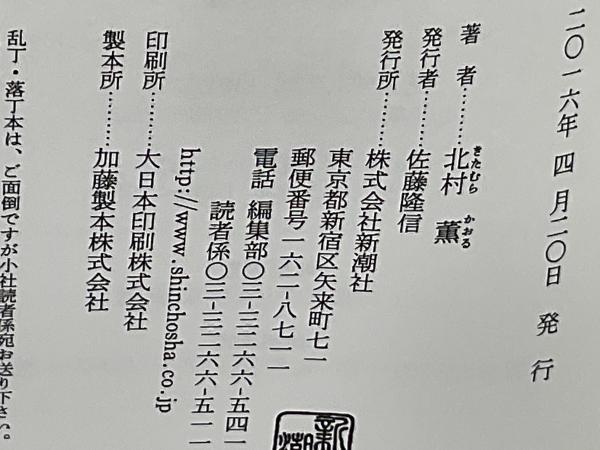 二〇一六年 四月二〇日 発行
著 者………北村 薫
きたむら かおる
発行者………佐藤隆信
発行所………株式会社新潮社
東京都新宿区矢来町七一
郵便番号一六二-八七一一
電話 編集部〇三-三二六六-五四一
読者係〇三-三二六六-五一一
http://www.shinchosha.co.jp
印刷所………大日本印刷株式会社
製本所………加藤製本株式会社
乱丁・落丁本は、ご面倒ですが小社読者係宛お送り下さい。
新潮